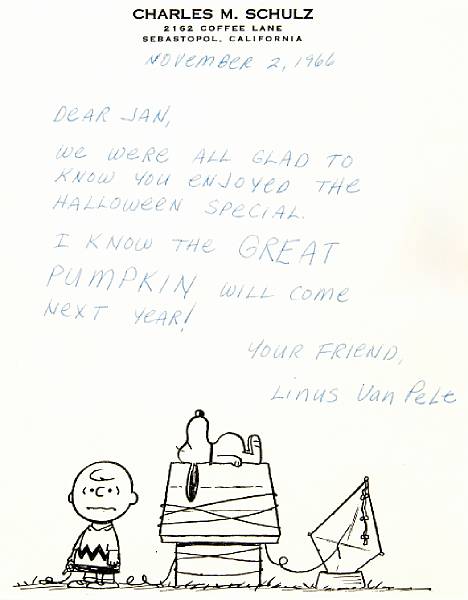 CHARLES M. SCHULZ
2162 COFFEE LANE
SEBASTOPOL, CALIFORNIA
NOVEMBER 2, 1966
DEAR JAN,
WE WERE ALL GLAD TO
KNOW YOU ENJOYED THE
HALLOWEEN SPECIAL.
I KNOW THE GREAT
PUMPKIN WILL COME
NEXT YEAR!
YOUR FRIEND,
Linus Van Pelt